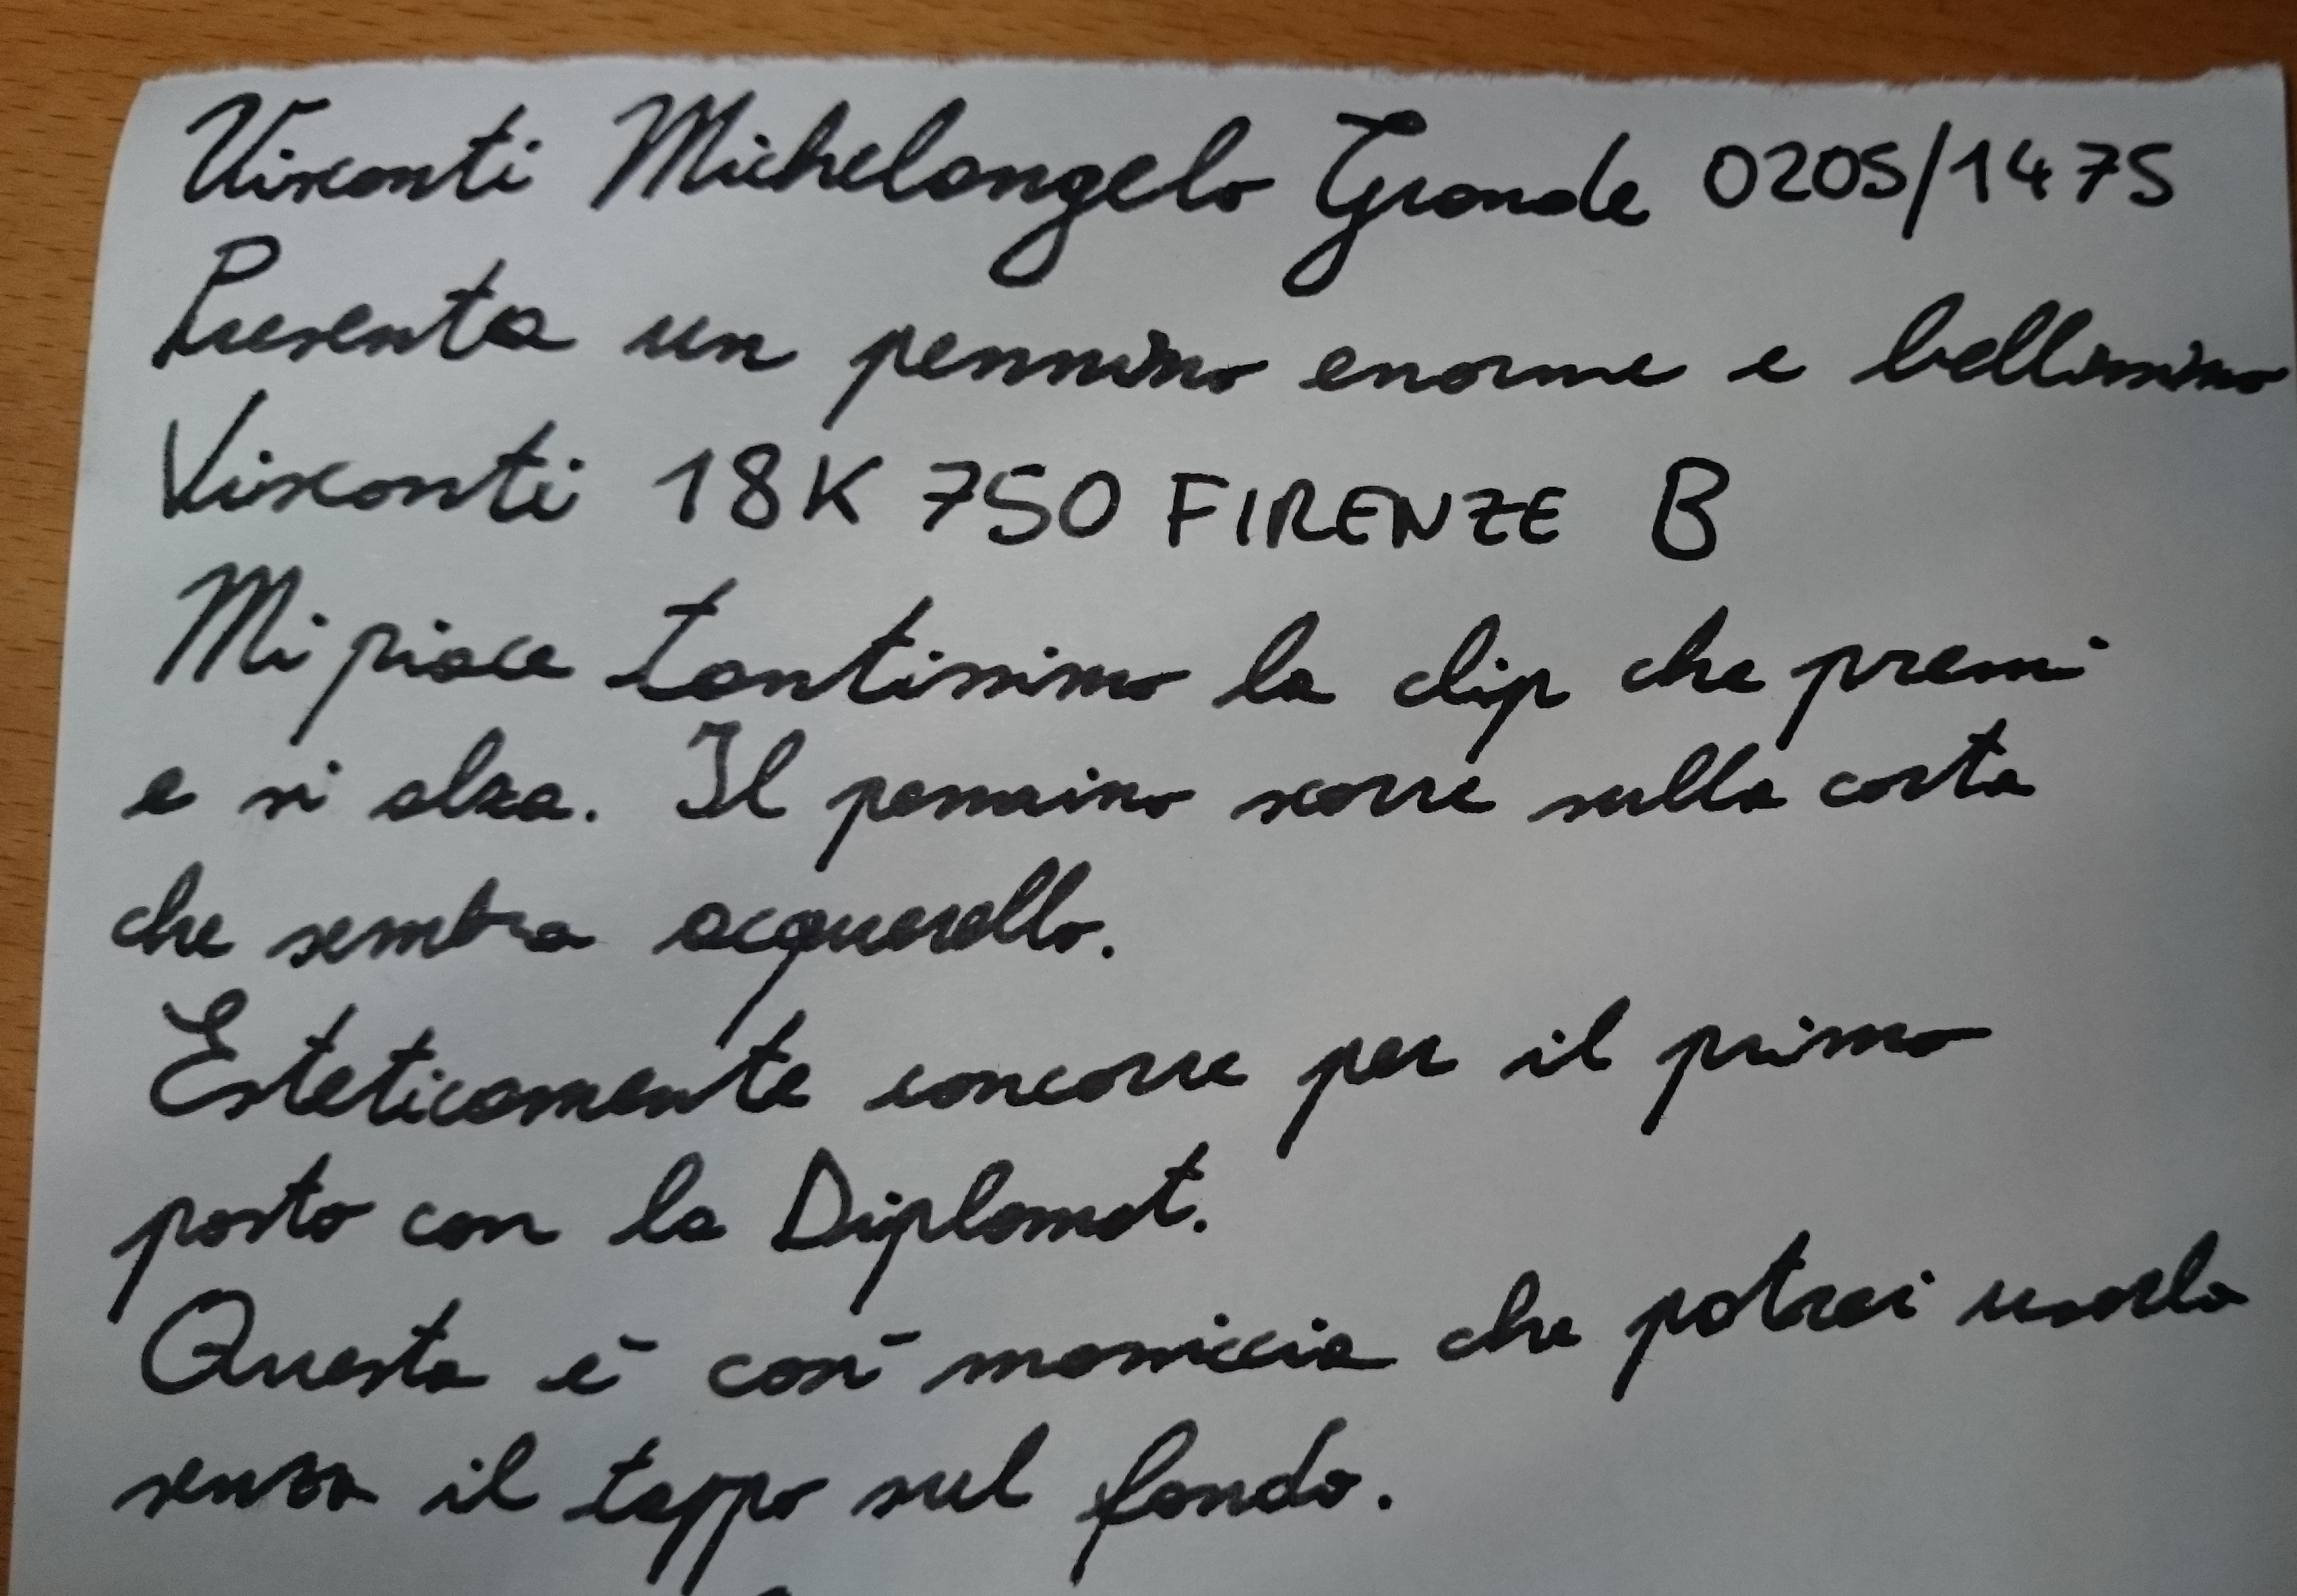 Visconti Michelangelo Grande 0205/1475
Presenta un pennino enorme e bellissimo
Visconti 18K 750 FIRENZE B
Mi piace tantissimo la clip che premi
e si alza. Il pennino scrive sulla carta
che sembra acquerello.
Esteticamente concorre per il primo
posto con la Diplomat.
Questa è così massiccia che potrei usarla
senza il tappo sul fondo.